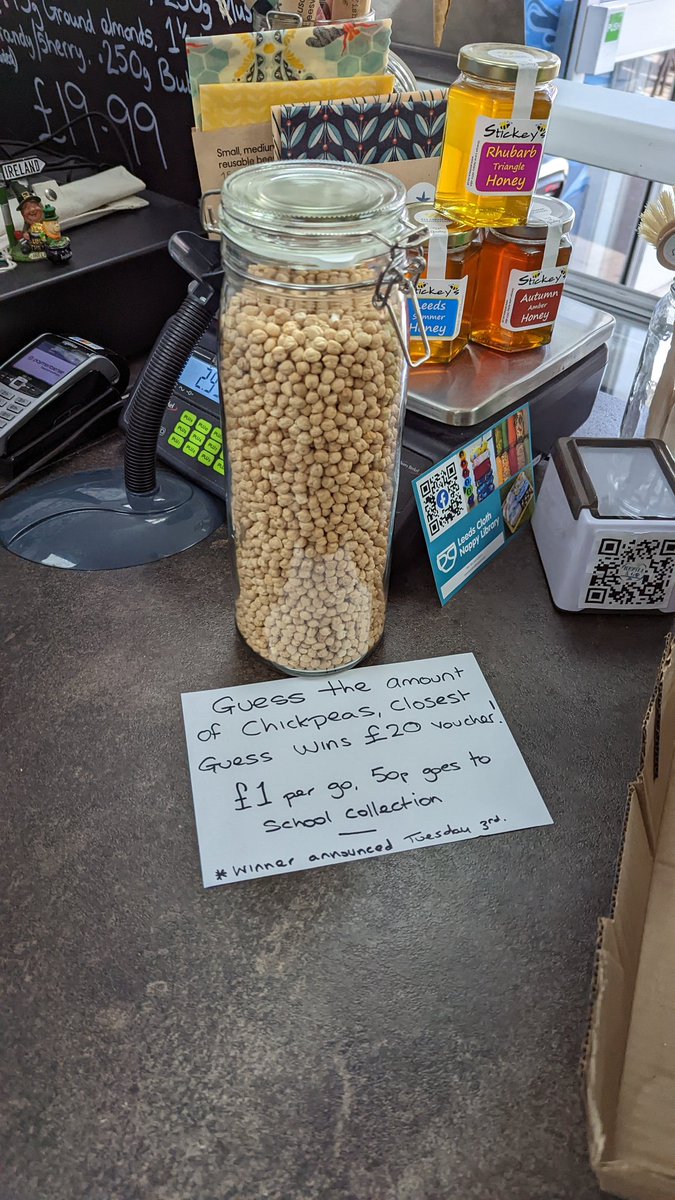 Ground almonds,
250g
£19.99
IRELAND
Small, medium
reusable
Stickey's
Rhubarb
Triangle
Honey
Stickey's
Autumn
Amber
Honey
Leeds
Summer
Honey
Leeds Cloth
Nappy Library
Guess the amount
of Chickpeas, closest
Guess wins £20 voucher!
£1 per go. 50p goes to
School collection
* Winner announced Tuesday 3rd.